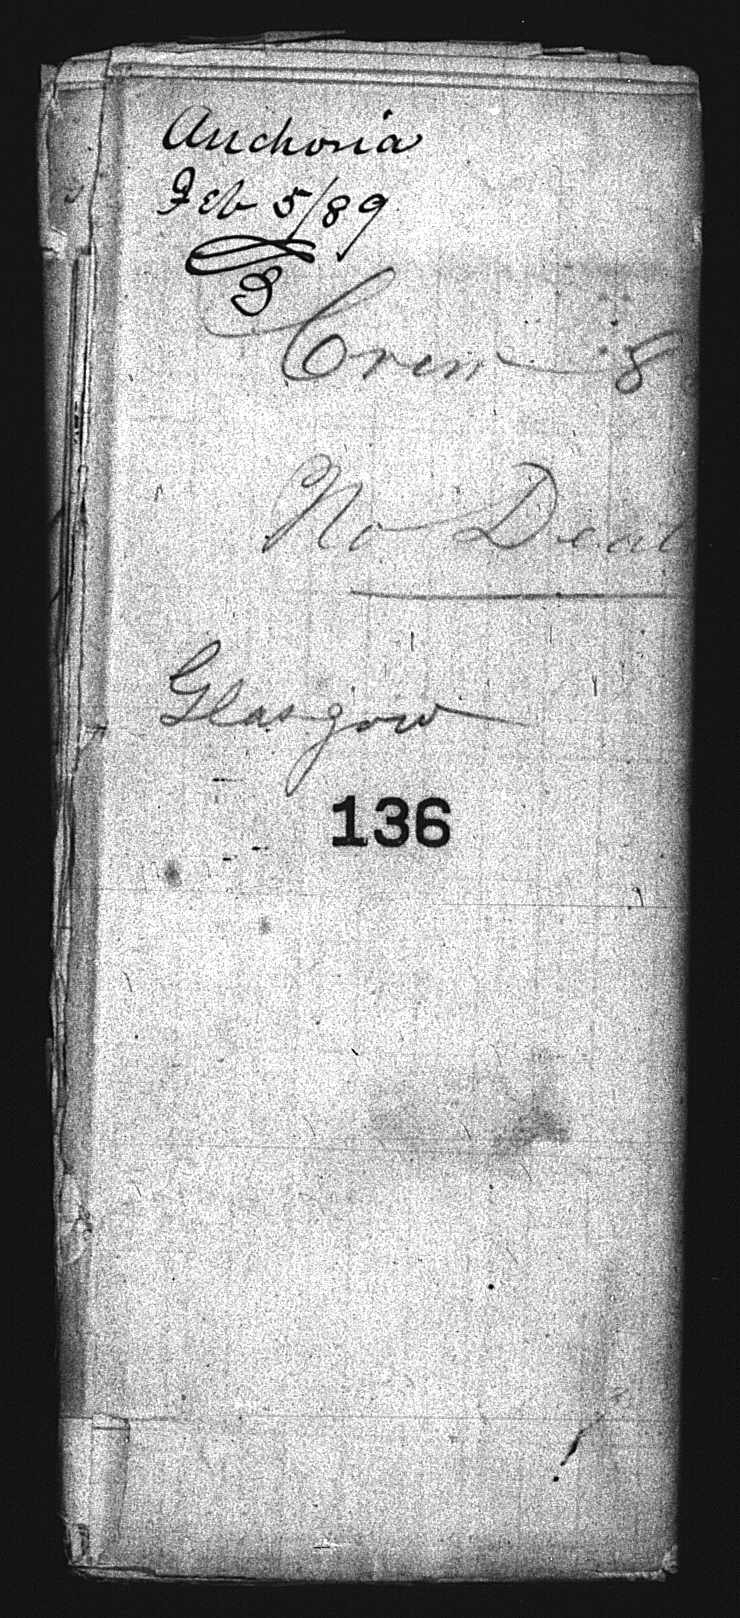 Anchoria
Feb 5/89
Crew 8
No Deat
Glasgow
136